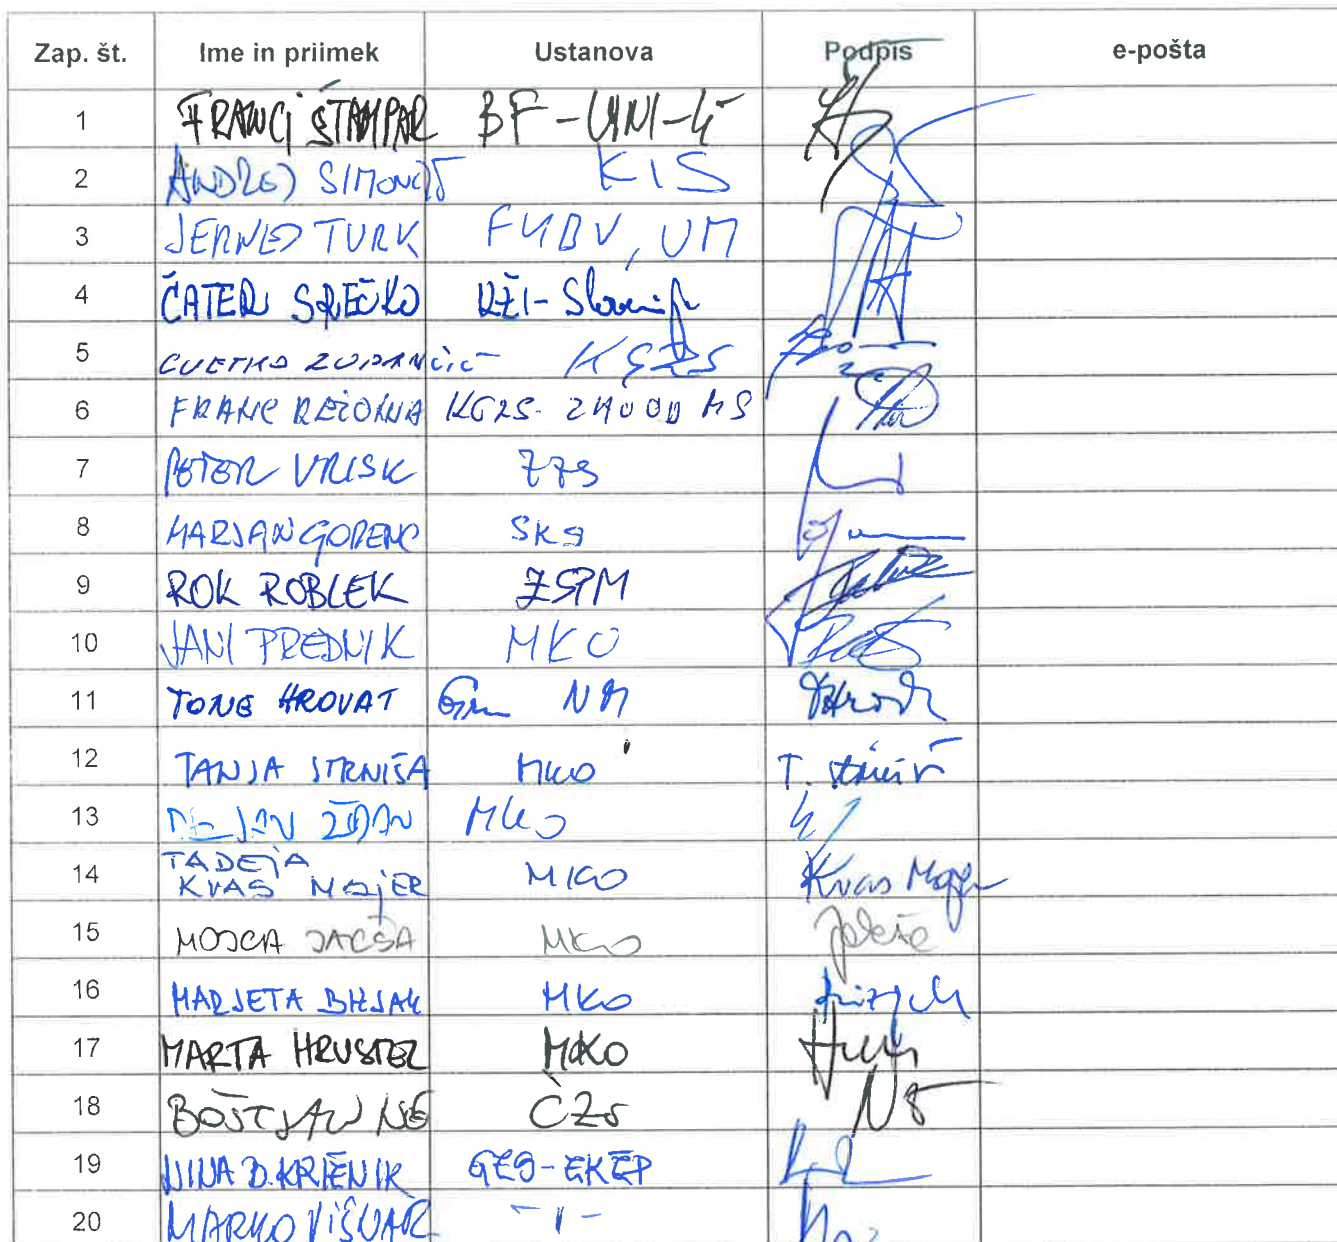 Zap. št. Ime in priimek Ustanova Podpis e-pošta
1 FRANCI ŠTAMPAR BF-UNI-LJ
2 ANDREJ SIMONČIČ KIS
3 JERNEJ TURK FKBV, UM
4 ČATER SREČKO RŽI-Slovenije
5 CVETKO ZUPANČIČ KGZS
6 FRANC REŽONJA KGZS- ZAVOD MS
7 PETER VRISK ZZS
8 MARJAN GORENC SKS
9 ROK ROBLEK ZSPM
10 JANI PREDNIK MKO
11 TONE HROVAT Grm NM
12 TANJA STRNIŠA MKO T. Strniša
13 DEJAN ŽIDAN MKO
14 TADEJA
KVAS MAJER MKO Kvas Majer
15 MOJCA JAKŠA MKO Jakša
16 MARJETA BIZJAK MKO Bizjak
17 MARTA HRUSTEL MKO
18 BOŠTJAN NOČ ČZS
19 NINA D. KRIŽNIK GZS-
20 MARKO VIŠNAR - ıı -